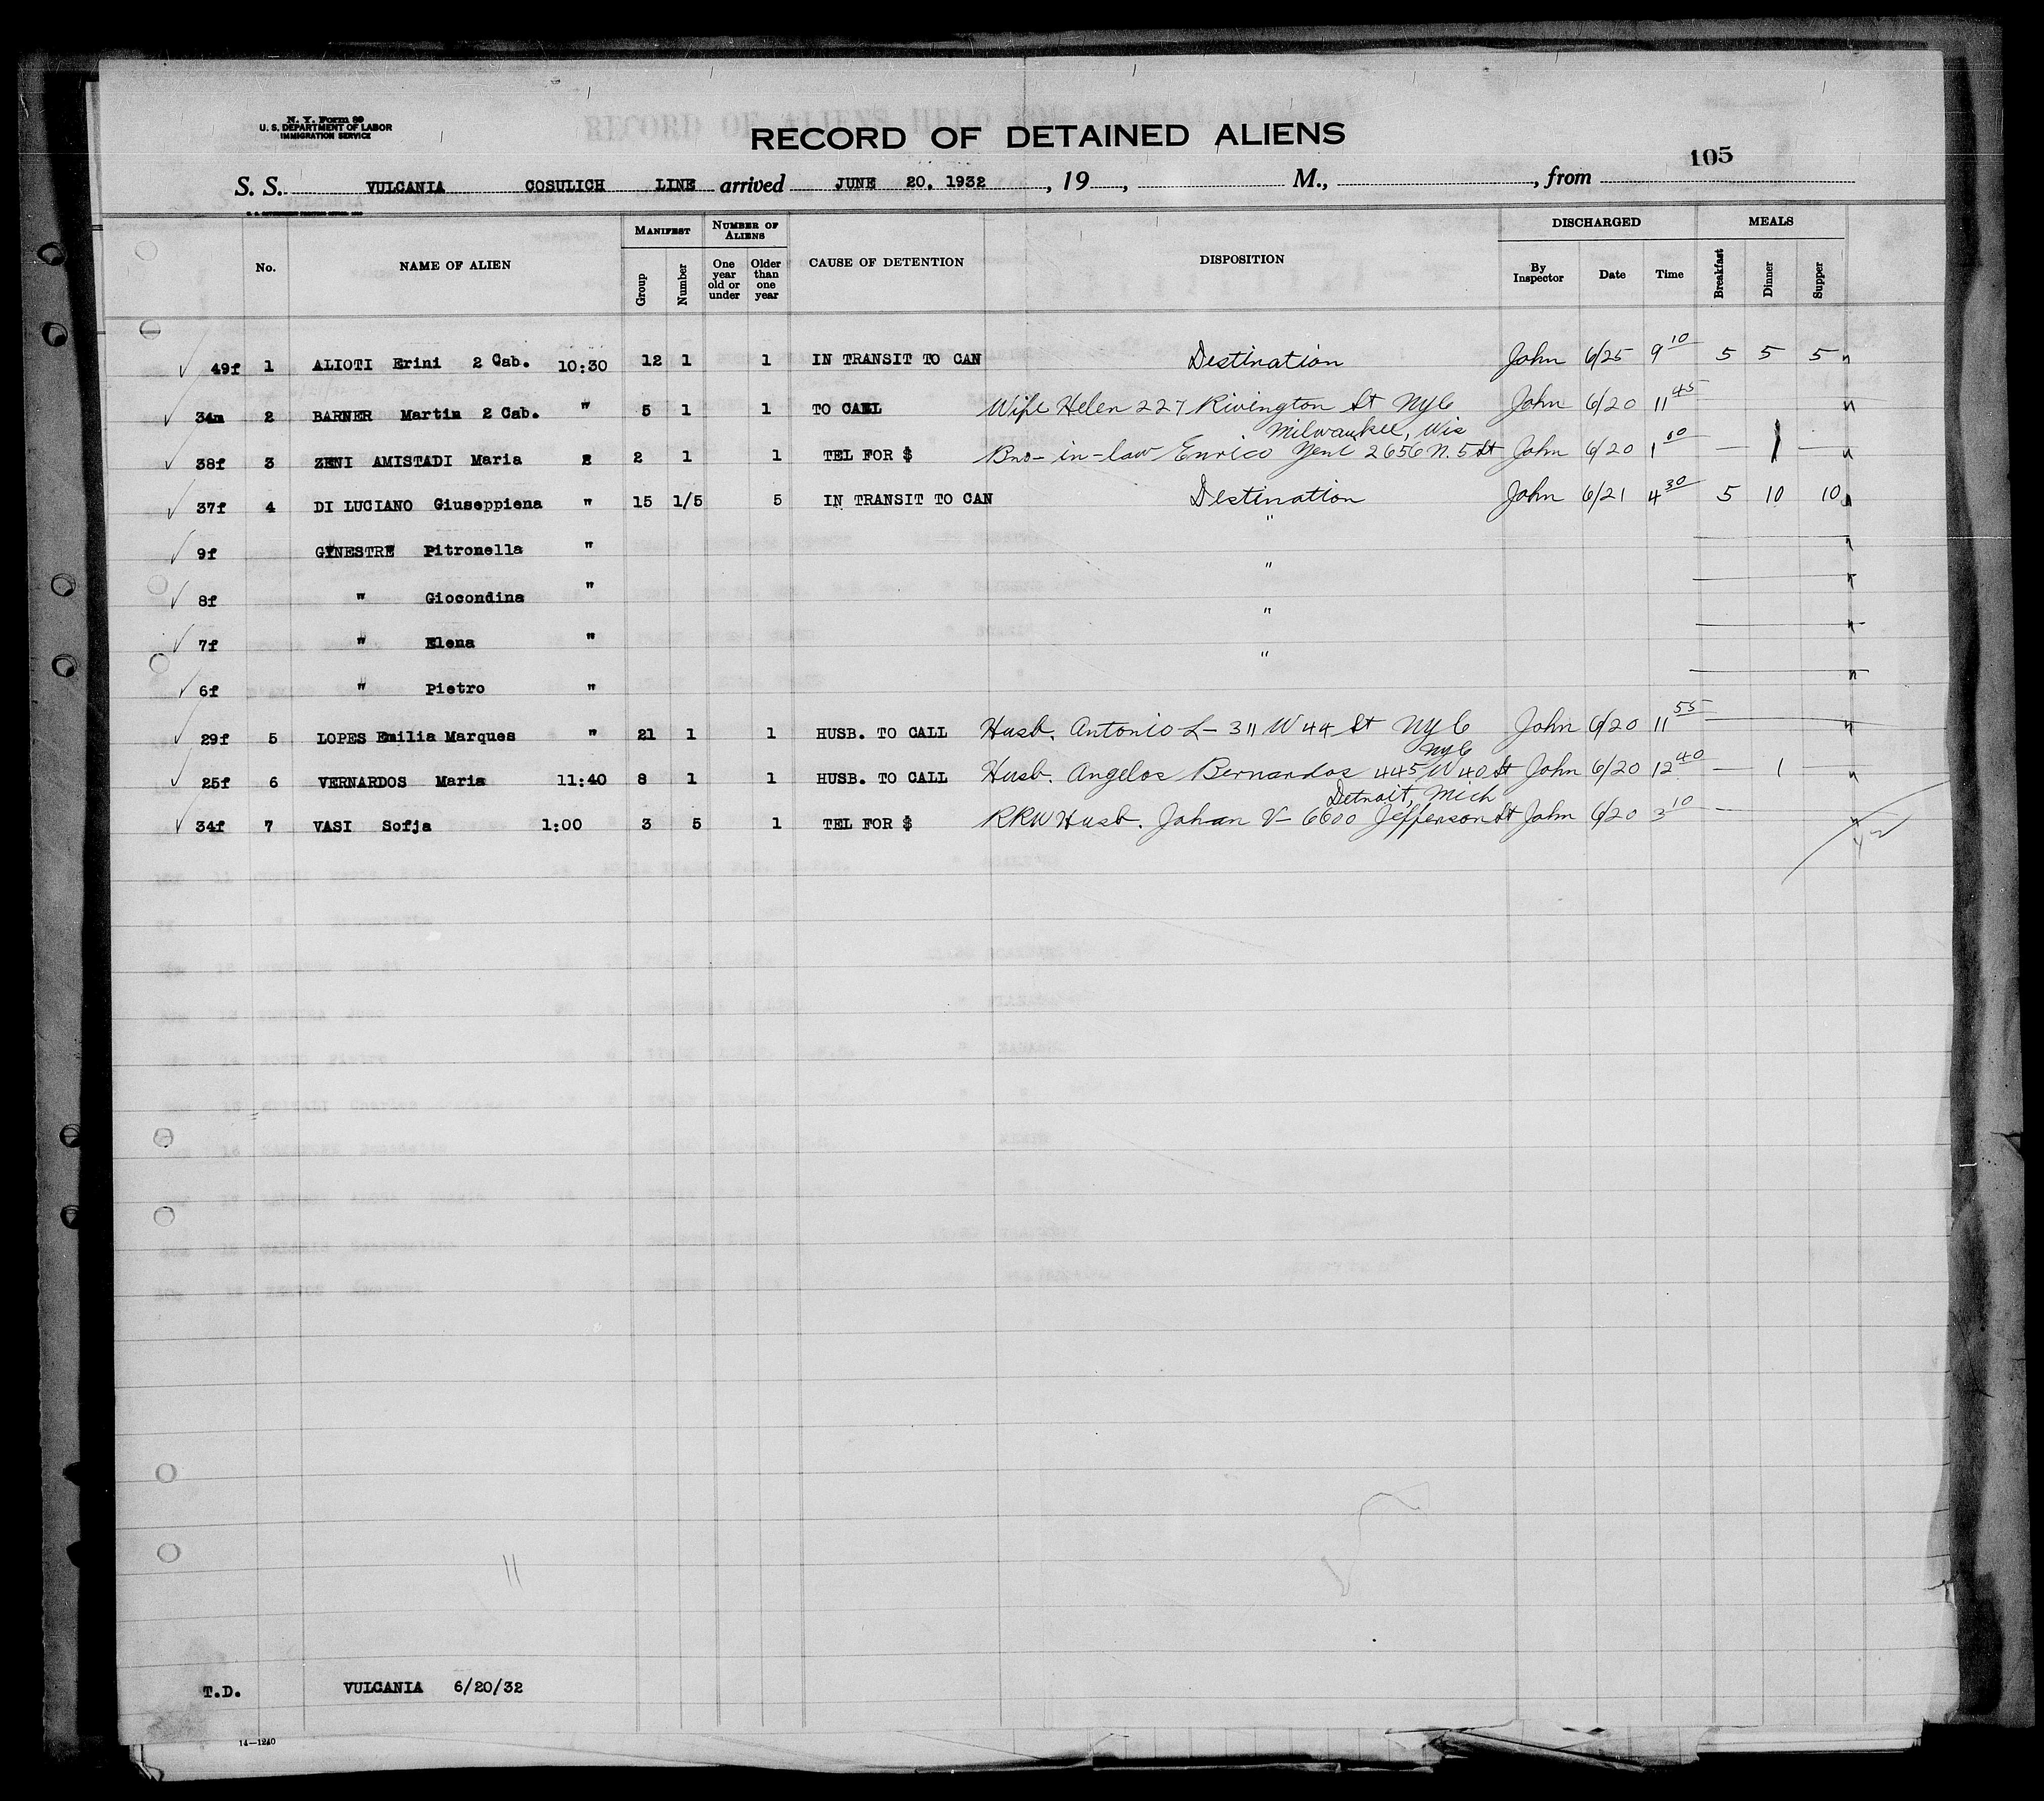 N. Y. Form 89
U. S. DEPARTMENT OF LABOR
IMMIGRATION SERVICE
RECORD OF DETAINED ALIENS
105
S. S. VULCANIA COSULICH LINE arrived JUNE 20, 1932, 19, M., , from
No. NAME OF ALIEN MANIFEST Group Number NUMBER OF ALIENS One year old or under Older than one year CAUSE OF DETENTION DISPOSITION DISCHARGED By Inspector Date Time MEALS Breakfast Dinner Supper
49f 1 ALIOTI Erini 2 Cab. 10:30 12 1 1 IN TRANSIT TO CAN Destination John 6/25 9 10 5 5 5
34m 2 BARNER Martin 2 Cab. " 5 1 1 TO CALL Wife Helen 227 Rivington St NYC John 6/20 11 45
Milwaukee, Wis
38f 3 ZENI AMISTADI Maria 2 1 1 TEL FOR $ Bro-in-law Enrico Zeni 2656 N. 5 St John 6/20 1 00 — 1 —
37f 4 DI LUCIANO Giuseppiena " 15 1/5 5 IN TRANSIT TO CAN Destination John 6/21 4 30 5 10 10
9f GINESTRE Pitronella " "
8f " Giocondina " "
7f " Elena " "
6f " Pietro " "
29f 5 LOPES Emilia Marques " 21 1 1 HUSB. TO CALL Husb. Antonio L- 311 W 44 St NYC John 6/20 11 55
NYC
25f 6 VERNARDOS Maria 11:40 8 1 1 HUSB. TO CALL Husb. Angelos Bernardos 445 W 40 St John 6/20 12 40 — 1
Detroit, Mich
34f 7 VASI Sofja 1:00 3 5 1 TEL FOR $ RRW Husb. Johan V- 6600 Jefferson St John 6/20 3 10 —
T.D. VULCANIA 6/20/32
14—1240